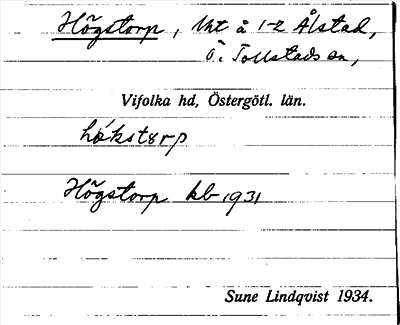 Högstorp, lht å 1-2 Ålstad,
Ö. Tollstads sn,
Vifolka hd, Östergötl. län.
hö́kstɵrp
Högstorp kb 1931
Sune Lindqvist 1934.